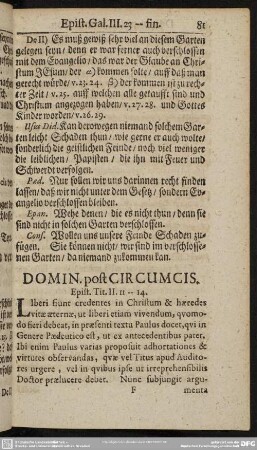 Epist. Gal. III. 23 -- fin. 81
De II) Es muß gewiß sehr viel an diesem Garten
gelegen seyn/ denn er war ferner auch verschlossen
mit dem Evangelio/ das war der Glaube an Chri-
stum JEsum/ der α) kommen solte/ auff daß man
gerecht würde/ v. 23. 24. β) der kommen ist zu rech-
ter Zeit/ v. 25. auff welchen alle getaufft sind und
Christum angezogen haben/ v. 27. 28. und Gottes
Kinder worden/ v. 26. 29.
Usus Did. Kan derowegen niemand solchem Gar-
ten leicht Schaden thun/ wie gerne er auch wolte/
sonderlich die geistlichen Feinde/ noch viel weniger
die leiblichen/ Papisten/ die ihn mit Feuer und
Schwerdt verfolgen.
Pæd. Nur sollen wir uns darinnen recht finden
lassen/ daß wir nicht unter dem Gesetz/ sondern Ev-
angelio verschlossen bleiben.
Epan. Wehe denen/ die es nicht thun/ denn sie
sind nicht in solchen Garten verschlossen.
Cons. Wollen uns unsere Feinde Schaden zu-
fügen. Sie können nicht/ wir sind im verschlosse-
nen Garten/ da niemand zukommen kan.
DOMIN. post CIRCUMCIS.
Epist. Tit. II. 11 -- 14.
Liberi fiunt credentes in Christum & hæredes
vitæ æternæ, ut liberi etiam vivendum, quomo-
do fieri debeat, in præsenti textu Paulus docet, qui in
Genere Pædeutico est, ut ex antecedentibus patet.
Ibi enim Paulus varias proposuit adhortationes &
virtutes observandas, quæ vel Titus apud Audito-
res urgere, vel in quibus ipse ut irreprehensibilis
Doctor prælucere debet. Nunc subjungit argu-
F menta